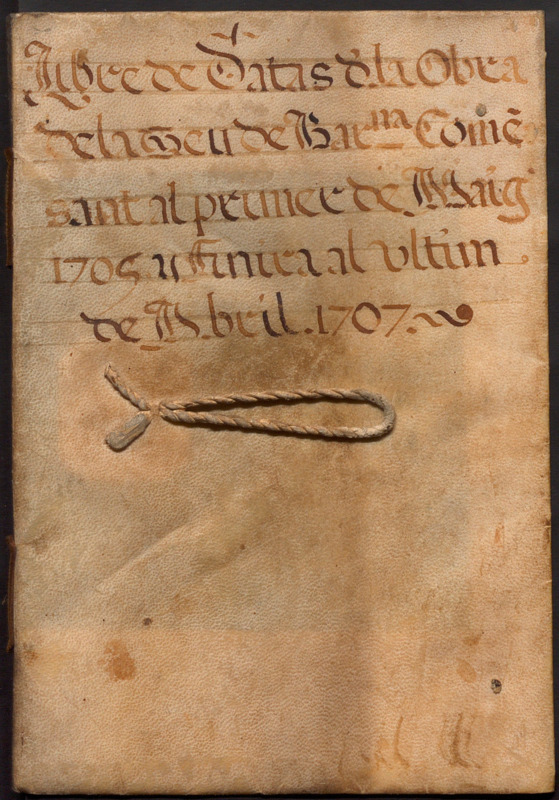 Llibre de Datas d.la Obra
de la Seu de Barna Comẽ
sant al primer de Maig
1705 y Finira al ultim
de Abril. 1707.